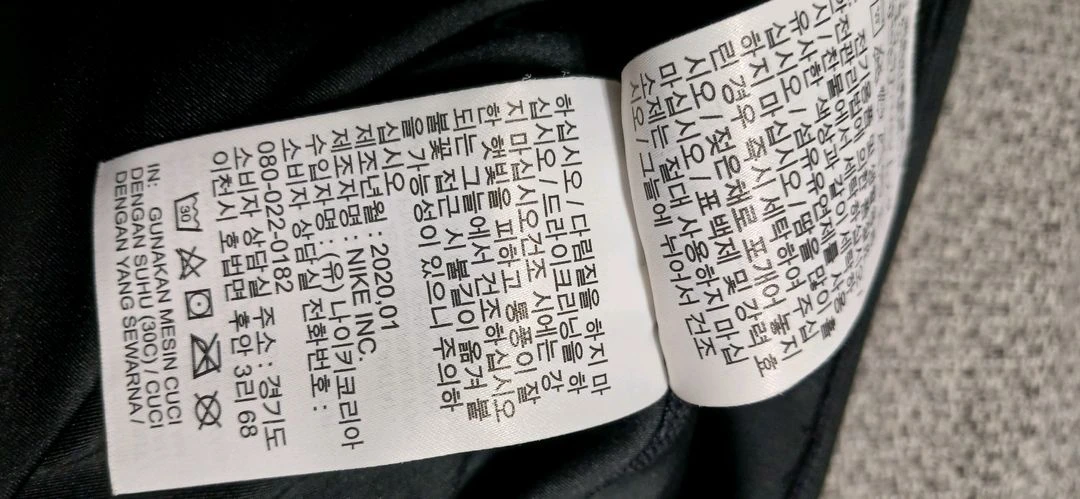 전기용품 및 생활용품
안전관리법에 의한 품질표
시 / 찬물에서 세탁하십시오 /
유사한 색상과 같이 세탁하
십시오 / 섬유유연제를 사용
하지 마십시오 / 땀을 많이 흘
린 경우 즉시 세탁하여 주십
시오 / 젖은채로 포개어 놓지
마십시오 / 표백제 및 강력 효
소제는 절대 사용하지 마십
시오 / 그늘에 뉘어서 건조
하십시오 / 다림질을 하지 마
십시오 / 드라이크리닝을 하
지 마십시오건조 시에는 강
한 햇빛을 피하고 통풍이 잘
되는 그늘에서 건조하십시오
불꽃 접근 시 불길이 옮겨 붙
을 가능성이 있으니 주의하
십시오
제조년월 : 2020.01
제조자명 : NIKE INC.
수입자명 : (유) 나이키코리아
소비자 상담실 전화번호 :
080-0222-0182
소비자 상담실 주소 : 경기도
이천시 호법면 후안 3리 68
30
IN: GUNAKAN MESIN CUCI
DENGAN SUHU (30C) / CUCI
DENGAN YANG SEWARNA /